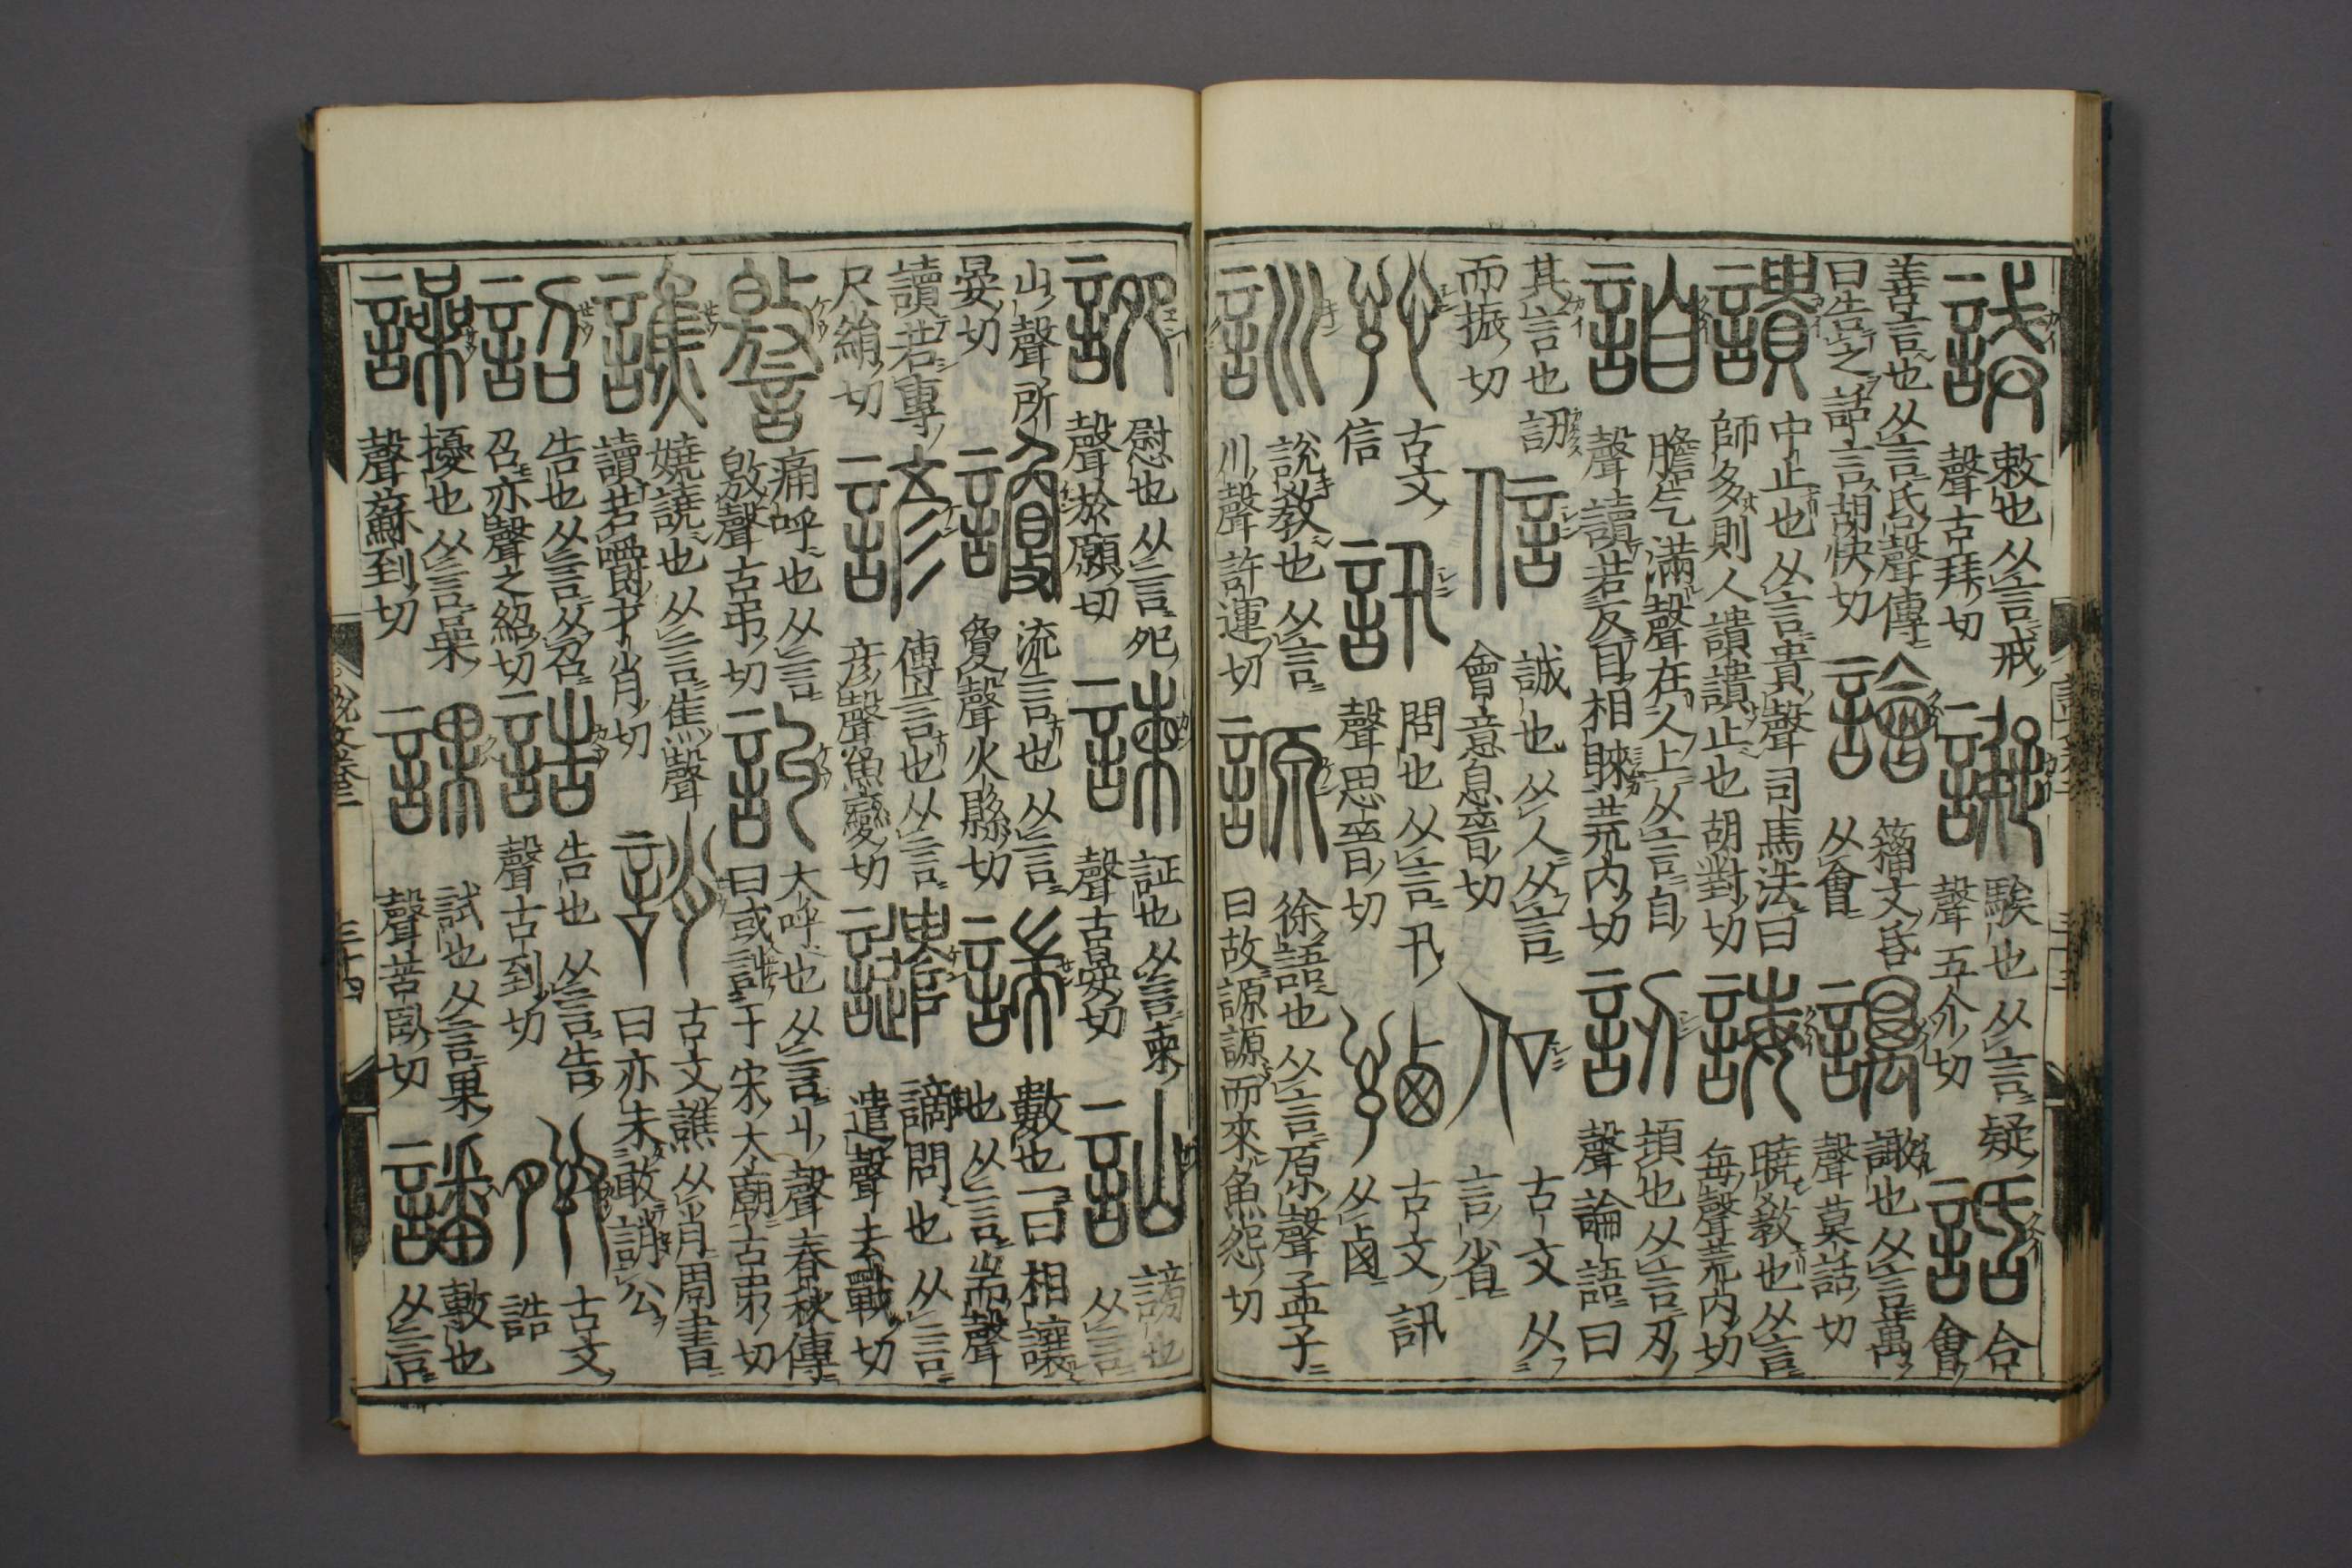 誡敕也从言戒聲古拜切譺騃也从言疑聲五介切話合會
善言也从言𠯑聲傳曰告之話言胡快切譮籀文𠯑从會䜕譀也从言萬聲莫話切
䜋中止也从言貴聲司馬法曰師多則人䜋䜋止也胡對切誨曉教也从言每聲荒内切
詯膽气滿聲在人上从言自聲讀若反目相睞荒内切訒頓也从言刃聲論語曰
其言也訒而振切信誠也从人从言會意息晉切㐰古文从言省
訫古文信訊問也从言卂聲思晉切古文訊从卥
訓說教也从言川聲許運切謜徐語也从言原聲孟子曰故謜謜而來魚怨切
䛄慰也从言夗聲於願切諫証也从言柬聲古晏切訕謗也从言
山聲所晏切讂流言也从言敻聲火縣切諯數也一曰相讓也从言耑聲
讀若專尺絹切諺傳言也从言彥聲魚變切譴謫問也从言遣聲去戰切
譥痛呼也从言敫聲古弔切訆大呼也从言丩聲春秋傳曰或訆于宋大廟古弔切
譙嬈譊也从言焦聲讀若嚼才肖切誚古文譙从肖周書曰亦未敢誚公
詔告也从言从召召亦聲之紹切誥告也从言告聲古到切古文誥
譟擾也从言喿聲蘇到切課試也从言果聲苦臥切譒敷也从言
說文卷三 三十四